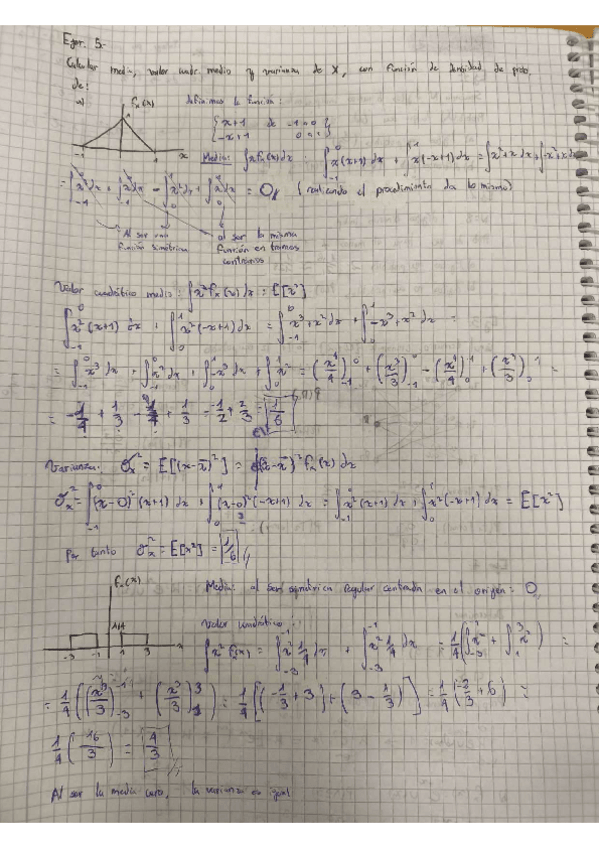 Ejer. 5.-
Calcular media, valor cuadr. medio y varianza de X, con función de densidad de prob.
de:
a)
fx(x)
1
-1
1
x
definimos la función:
{ x+1 de -1 a 0
-x+1 0 a 1 }
Media: ∫x fx(x) dx : ∫₋₁⁰ x(x+1) dx + ∫₀¹ x(-x+1) dx = ∫x²+x dx + ∫-x²+x dx
= ∫₋₁⁰ x² dx + ∫₋₁⁰ x dx - ∫₀¹ x² dx + ∫₀¹ x dx = 0 (realizando el procedimiento da lo mismo)
Al ser una función simétrica
al ser la misma función en tramos contrarios
Valor cuadrático medio: ∫x² fx(x) dx = E[x²]
∫₋₁⁰ x²(x+1) dx + ∫₀¹ x²(-x+1) dx = ∫₋₁⁰ x³+x² dx + ∫₀¹ -x³+x² dx =
= ∫₋₁⁰ x³ dx + ∫₋₁⁰ x² dx + ∫₀¹ -x³ dx + ∫₀¹ x² = (x⁴/4)₋₁⁰ + (x³/3)₋₁⁰ - (x⁴/4)₀¹ + (x³/3)₀¹ =
= -1/4 + 1/3 - 1/4 + 1/3 = -1/2 + 2/3 = 1/6
Varianza: σx² = E[(x-x̄)²] = ∫(x-x̄)² fx(x) dx
σx² = ∫₋₁⁰ (x-0)² (x+1) dx + ∫₀¹ (x-0)² (-x+1) dx = ∫₋₁⁰ x²(x+1) dx + ∫₀¹ x²(-x+1) dx = E[x²]
Por tanto σx² = E[x²] = 1/6
fx(x)
1/4
-3 -1 1 3 x
Media: al ser simétrica regular centrada en el origen = 0
Valor cuadrático:
∫x² fx(x) = ∫₋₃⁻¹ x² 1/4 dx + ∫₋₃⁻¹ x² 1/4 dx = 1/4(∫₋₃⁻¹ x² + ∫₁³ x²) =
= 1/4((x³/3)₋₃⁻¹ + (x³/3)₁³) = 1/4[(-1/3 + 3) + (3 - 1/3)] = 1/4(-2/3 + 6) =
1/4(16/3) = 4/3
Al ser la media cero, la varianza es igual